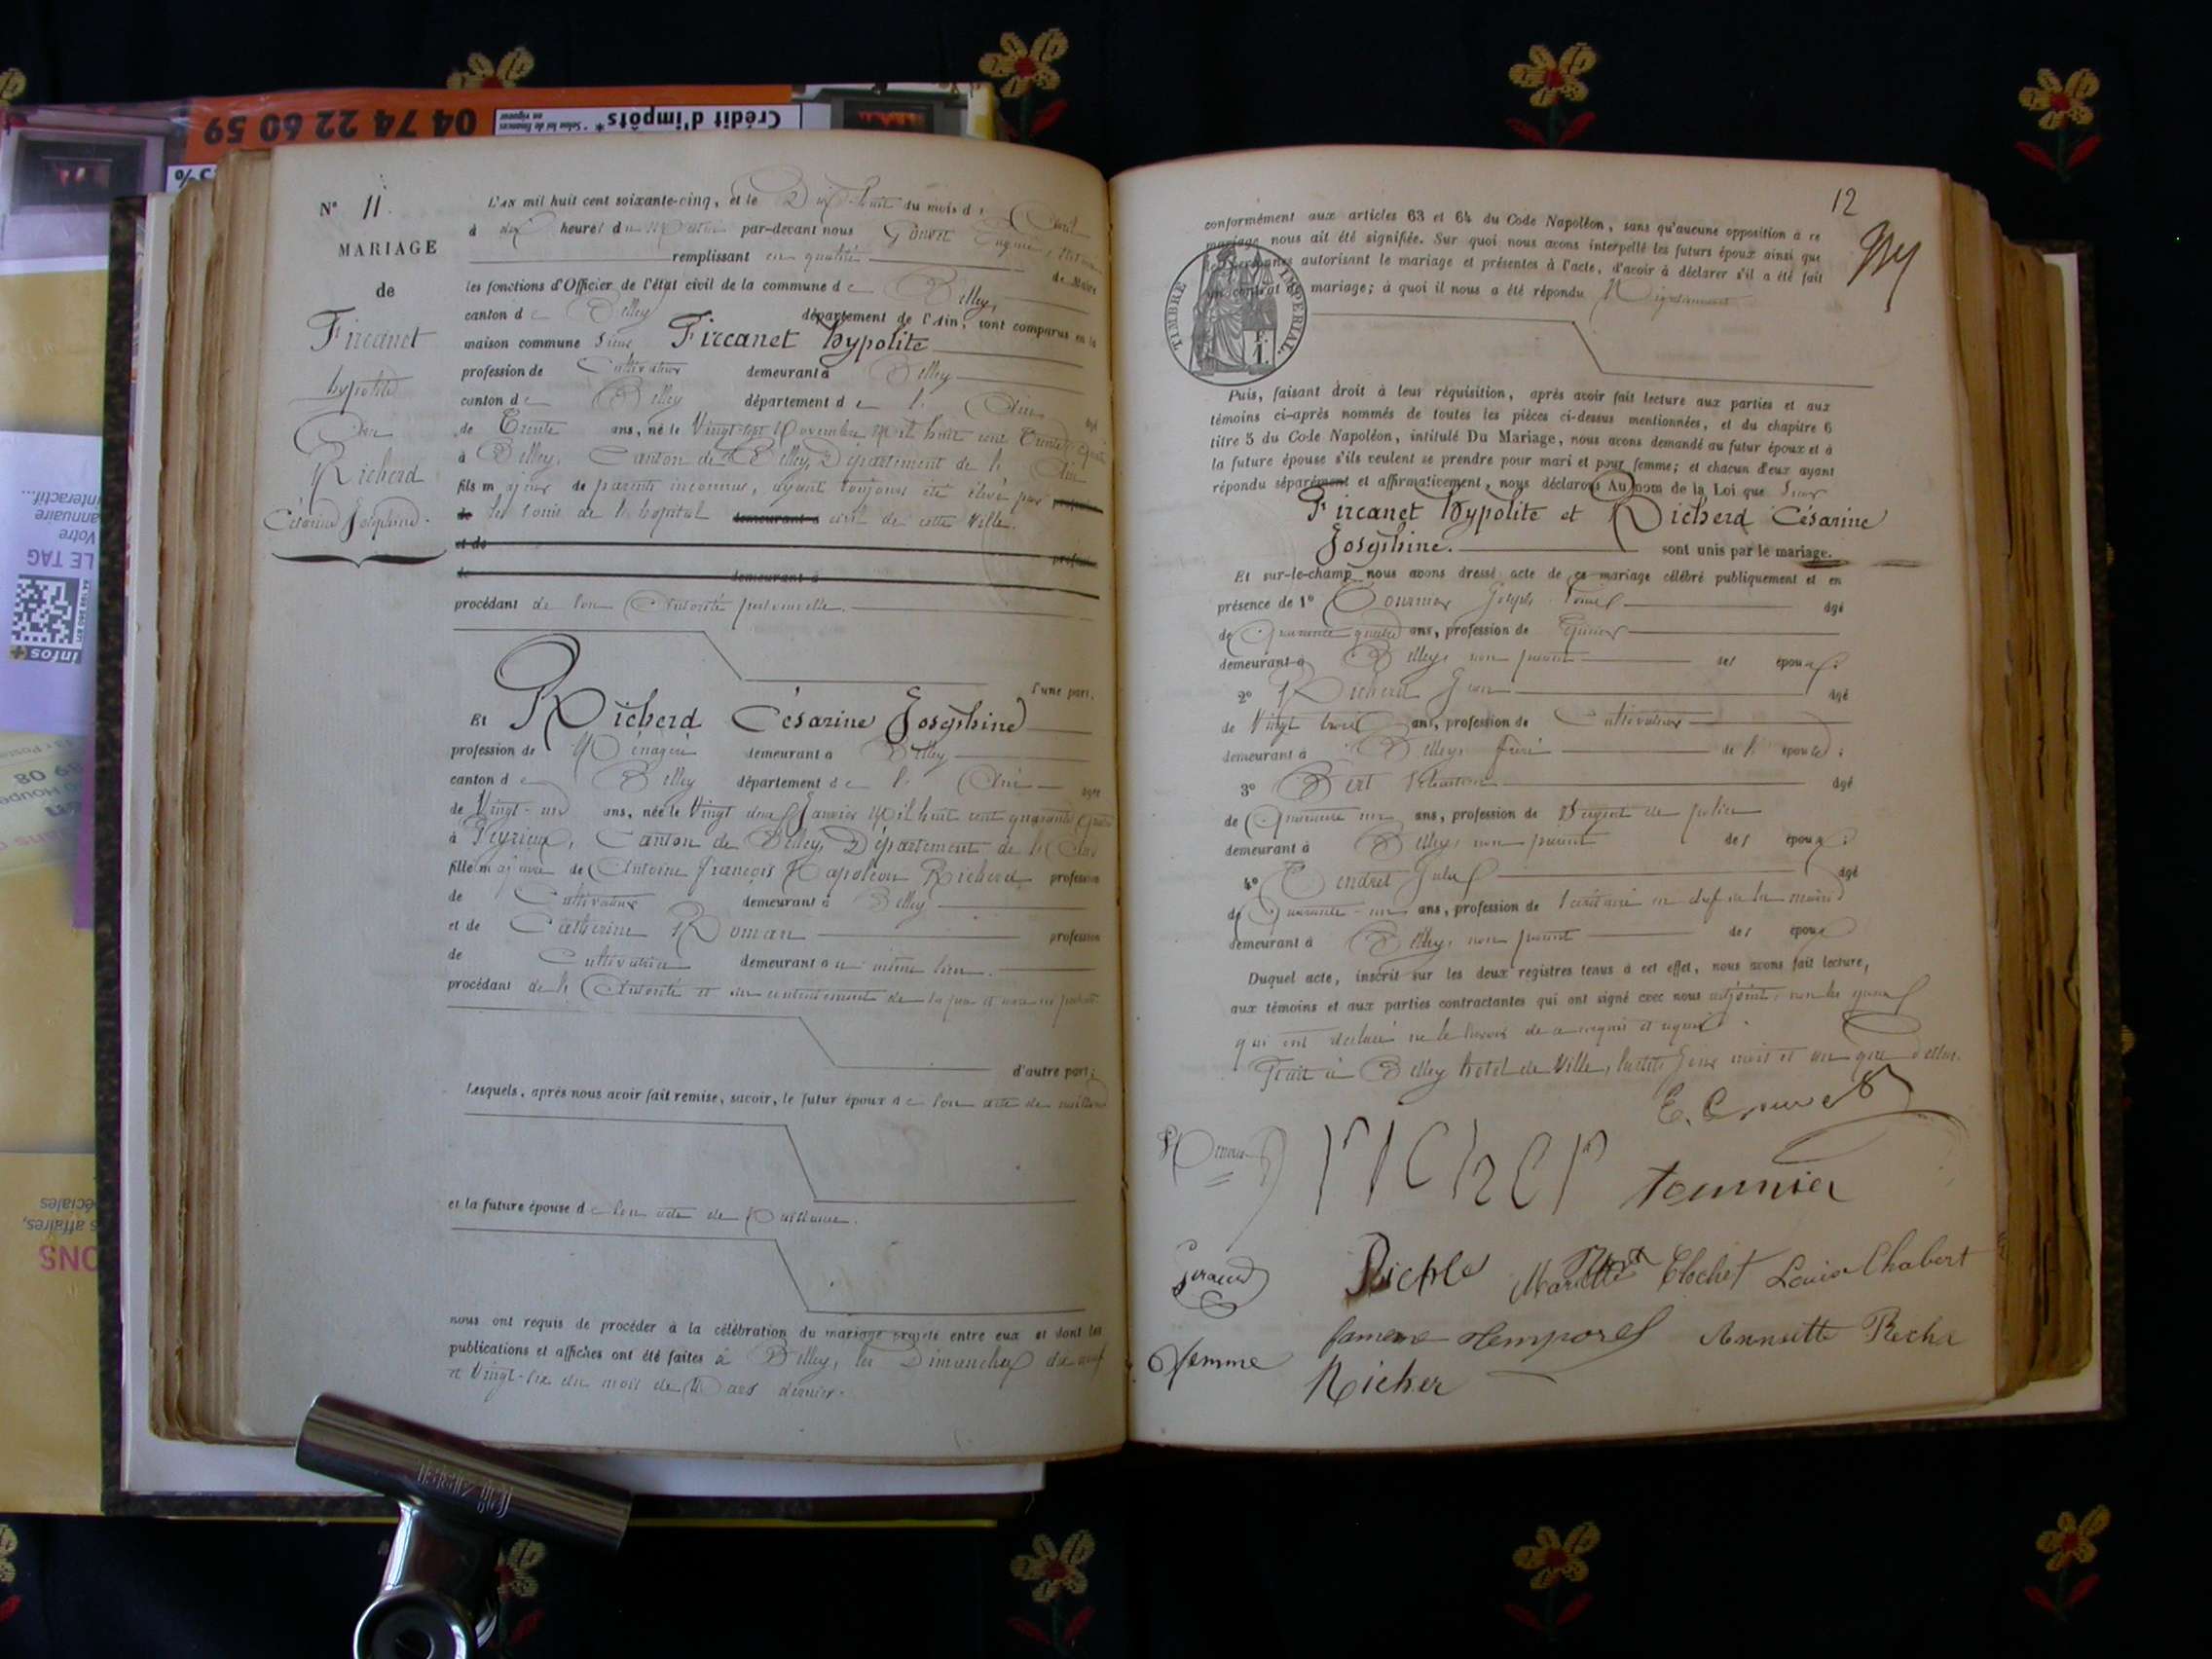 04 74 22 60 59
Crédit d'impôts*
* Selon loi de finances
en vigueur
interactif...
annuaire
Votre
LE TAG
infos+
N° 11.
MARIAGE
de
Fircanet
hypolite
Et
Richerd
Césarine Joséphine.
L'An mil huit cent soixante-cinq, et le Dix huit du mois d'Avril
à dix heures du Matin par-devant nous Gouvet Eugène,
remplissant en qualité de Maire
les fonctions d'Officier de l'état civil de la commune de Belley,
canton de Belley département de l'Ain, sont comparus en la
maison commune Sieur Fircanet hypolite
profession de Cultivateur demeurant à Belley
canton de Belley département de l'Ain âgé
de Trente ans, né le Vingt-sept Novembre Mil huit cent Trente quatre
à Belley, Canton de Belley, Département de l'Ain
fils majeur de parents inconnus, ayant toujours été élevé par profession
de les soins de l'hopital demeurant à civil de cette Ville.
et de profession
de demeurant à
procédant de son Autorité personnelle.
d'une part,
Et Richerd Césarine Joséphine
profession de Ménagère demeurant à Belley
canton de Belley département de l'Ain âgée
de Vingt-un ans, née le Vingt deux Janvier Mil huit cent quarante quatre
à Peyrieu, Canton de Belley, Département de l'Ain
fille majeure de Antoine François Napoléon Richerd, profession
de Cultivateur demeurant à Belley
et de Catherine Roman profession
de Cultivatrice demeurant au même lieu.
procédant de l'Autorité et du consentement de ses père et mère ici présents
d'autre part;
Lesquels, après nous avoir fait remise, savoir, le futur époux de son acte de naissance
et la future épouse de son acte de Naissance.
nous ont requis de procéder à la célébration du mariage projeté entre eux et dont les
publications et affiches ont été faites à Belley, les Dimanches dix neuf
et Vingt-six du mois de Mars dernier.
12
conformément aux articles 63 et 64 du Code Napoléon, sans qu'aucune opposition à ce
mariage nous ait été signifiée. Sur quoi nous avons interpellé les futurs époux ainsi que
les personnes autorisant le mariage et présentes à l'acte, d'avoir à déclarer s'il a été fait
un contrat de mariage; à quoi il nous a été répondu Négativement
TIMBRE IMPÉRIAL.
F.
1.
Puis, faisant droit à leur réquisition, après avoir fait lecture aux parties et aux
témoins ci-après nommés de toutes les pièces ci-dessus mentionnées, et du chapitre 6
titre 5 du Code Napoléon, intitulé Du Mariage, nous avons demandé au futur époux et à
la future épouse s'ils veulent se prendre pour mari et pour femme; et chacun d'eux ayant
répondu séparément et affirmativement, nous déclarons Au nom de la Loi que Sieur
Fircanet hypolite et Richerd Césarine
Joséphine. sont unis par le mariage.
Et sur-le-champ nous avons dressé acte de ce mariage célébré publiquement et en
présence de 1° Tournier Joseph âgé
de Quarante quatre ans, profession de Epicier
demeurant à Belley, non parent des époux;
2° Richerd Jean âgé
de Vingt trois ans, profession de Cultivateur
demeurant à Belley, frère de l'épouse;
3° Bert Sébastien âgé
de Quarante un ans, profession de Sergent de police
demeurant à Belley, non parent des époux;
4° Tendret Jules âgé
de Quarante-un ans, profession de secrétaire en chef de la mairie
demeurant à Belley, non parent des époux
Duquel acte, inscrit sur les deux registres tenus à cet effet, nous avons fait lecture,
aux témoins et aux parties contractantes qui ont signé avec nous
qui ont déclaré ne le savoir de ce requis
Fait à Belley hotel de Ville, lesdits jour mois et an que dessus.
E. Gouvet
richer
tournier
Giraud
Richer
Mariette Clochet Louise Chabert
famene Temporel Annsette Riche
femme
Richer